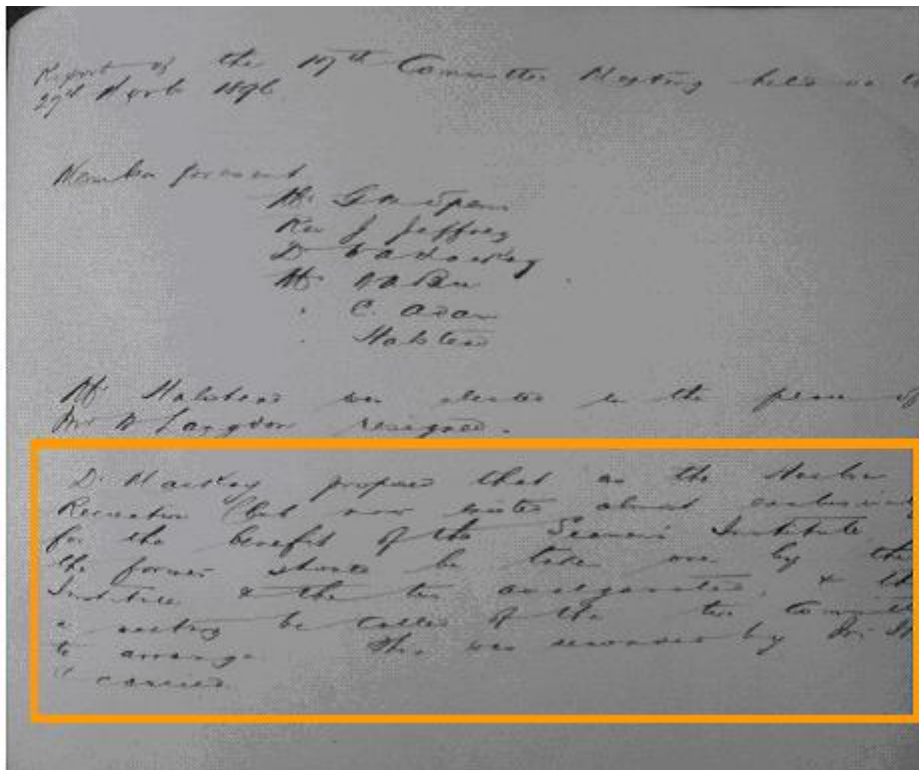 Report of the 19th Committee Meeting held on
29th 1896
Members present
Mr. Spens
Rev J Jeffrey
D
Mr.
C. Adam
Halstead
Mr Halstead was elected in the place of
Mr Langdon resigned.
Dr. Mackay proposed that as the
Recreation Club now exists almost exclusively
for the benefit of the Seamen's Institute
the former should be taken over by the
Institute & the two amalgamated, &
a meeting be called of the two
to arrange. This was seconded by Mr.
& carried.